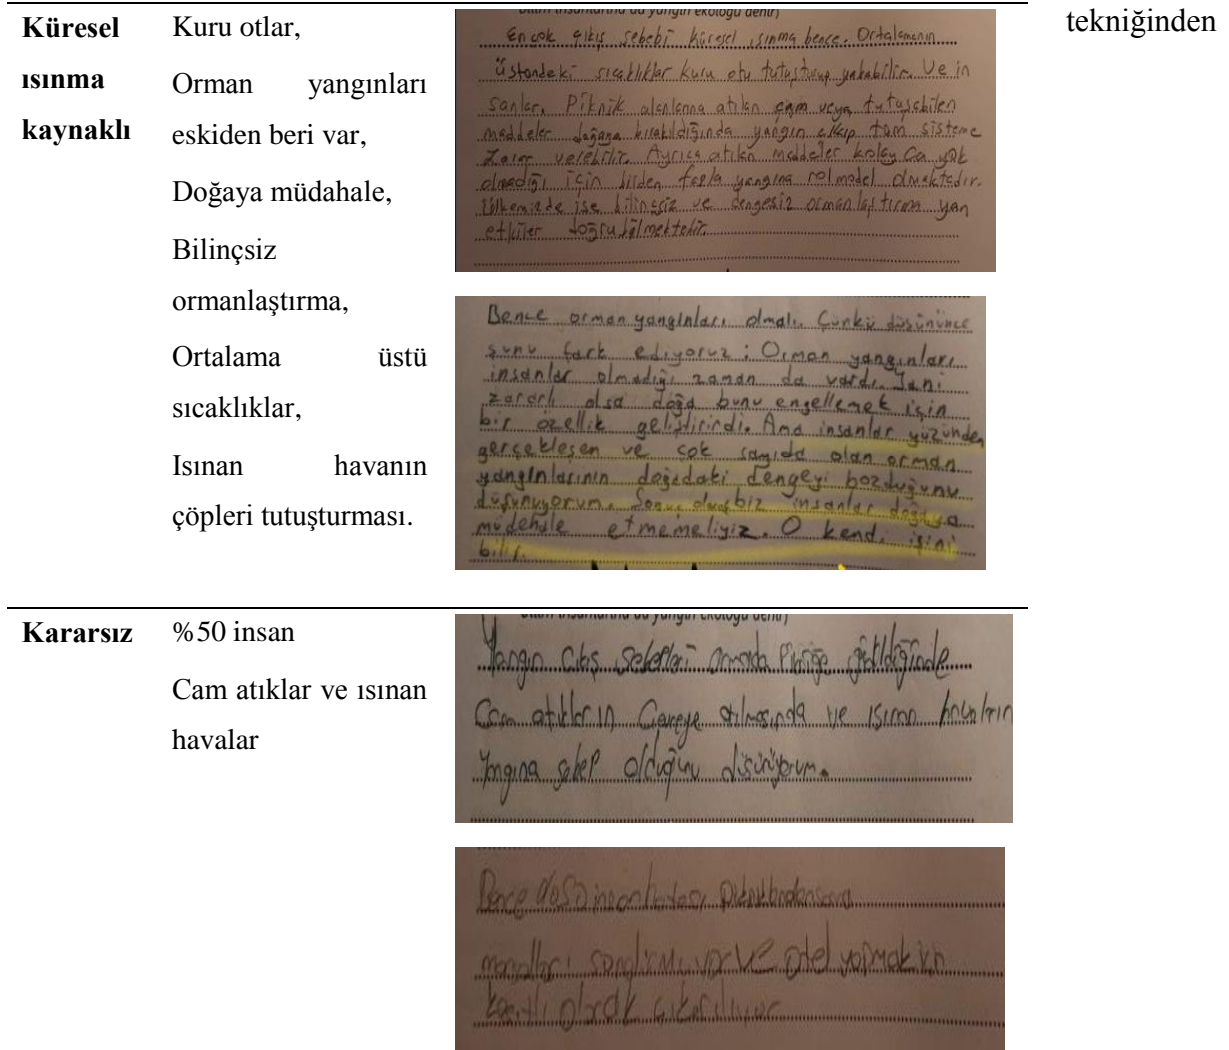 tekniğinden
Küresel
ısınma
kaynaklı
Kuru otlar,
Orman yangınları
eskiden beri var,
Doğaya müdahale,
Bilinçsiz
ormanlaştırma,
Ortalama üstü
sıcaklıklar,
Isınan havanın
çöpleri tutuşturması.
bilim insanlarına da yangın ekoloğu denir)
En çok çıkış sebebi küresel ısınma bence. Ortalamanın
üstündeki sıcaklıklar kuru otu tutuşturup yakabilir. Ve in
sanlar. Piknik alanlarına atılan cam veya tutuşabilen
maddeler doğaya bırakıldığında yangın çıkıp tüm sisteme
zarar verebilir. Ayrıca atılan maddeler kolayca yok
olmadığı için birden fazla yangına rol model olmaktadır.
Ülkemizde ise bilinçsiz ve dengesiz ormanlaştırma yan
etkiler
Bence orman yangınları olmalı. Çünkü düşününce
şunu fark ediyoruz: Orman yangınları
insanlar olmadığı zaman da vardı. Yani
zararlı olsa doğa bunu engellemek için
bir özellik geliştirirdi. Ama insanlar yüzünden
gerçekleşen ve çok sayıda olan orman
yangınlarının doğadaki dengeyi bozduğunu
düşünüyorum. Sonuç olarak biz insanlar doğaya
müdehale etmemeliyiz. O kendi işini
bilir.
Kararsız
%50 insan
Cam atıklar ve ısınan
havalar
bilim insanlarına da yangın ekoloğu denir)
Yangın çıkış sebepleri pikniğe gidildiğinde
Cam atıkların Çevreye atılmasında ve ısınan havaların
Yangına sebep olduğunu düşünüyorum.
Bence %50 insan hatası
mangalları söndürmüyor ve otel yapmak için
kasıtlı olarak çıkarılıyor